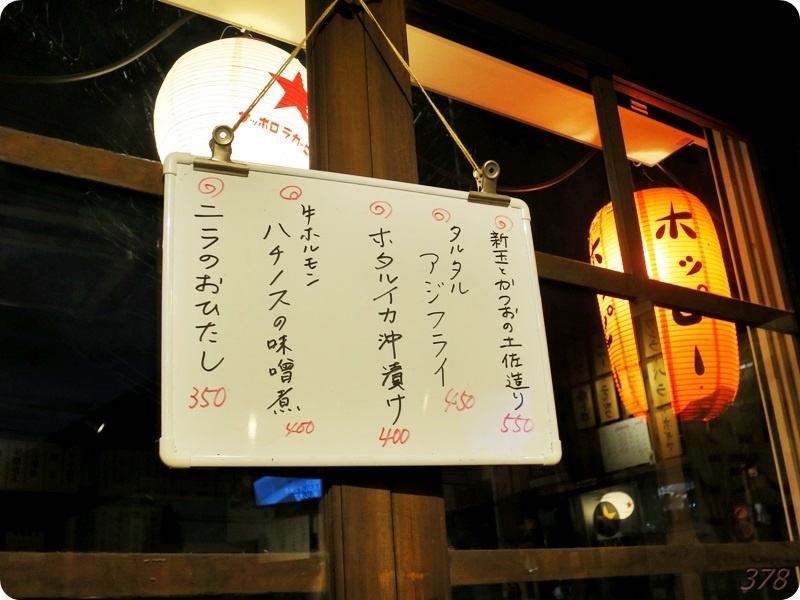 新玉とかつおの土佐造り
550
タルタル
アジフライ
450
ホタルイカ沖漬け
400
牛ホルモン
ハチノスの味噌煮
400
ニラのおひたし
350
サッポロラガービ
ホッピー
378